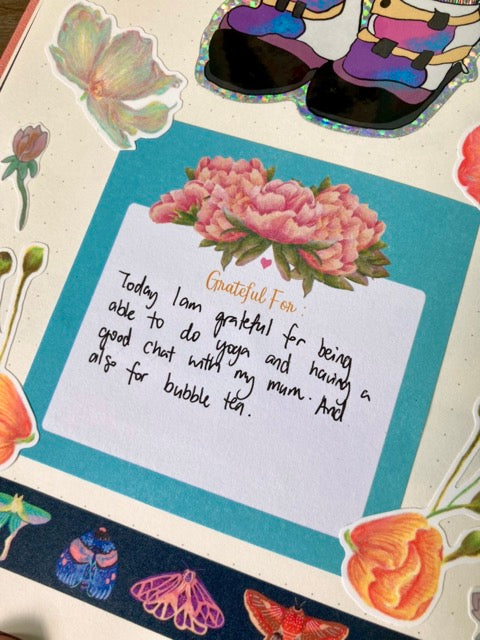 Grateful For:
Today I am grateful for being
able to do yoga and having a
good chat with my mum. And
also for bubble tea.